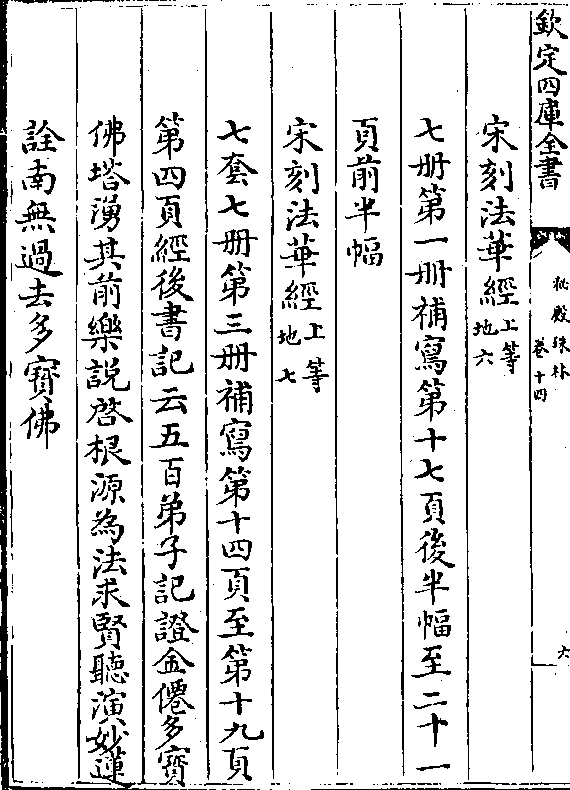 欽定四庫全書
秘殿珠林
卷十四
六
宋刻法華經上等地六
七册第一册補寫第十七頁後半幅至二十一
頁前半幅
宋刻法華經上等地七
七套七册第三册補寫第十四頁至第十九頁
第四頁經後書記云五百弟子記證金僊多寶
佛塔湧其前樂説啓根源為法求賢聽演妙蓮
詮南無過去多寳佛